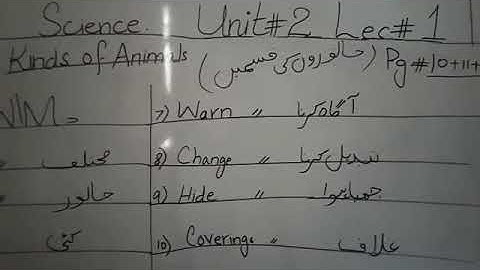 Science. Unit#2 Lec# 1
Kinds of Animals (جانوروں کی قسمیں) Pg #10+11+
W/M
7) Warn " آگاہ کرنا
مختلف 8) Change " تبدیل کرنا
جانور 9) Hide " چھپانا
کئی 10) Coverings " غلاف